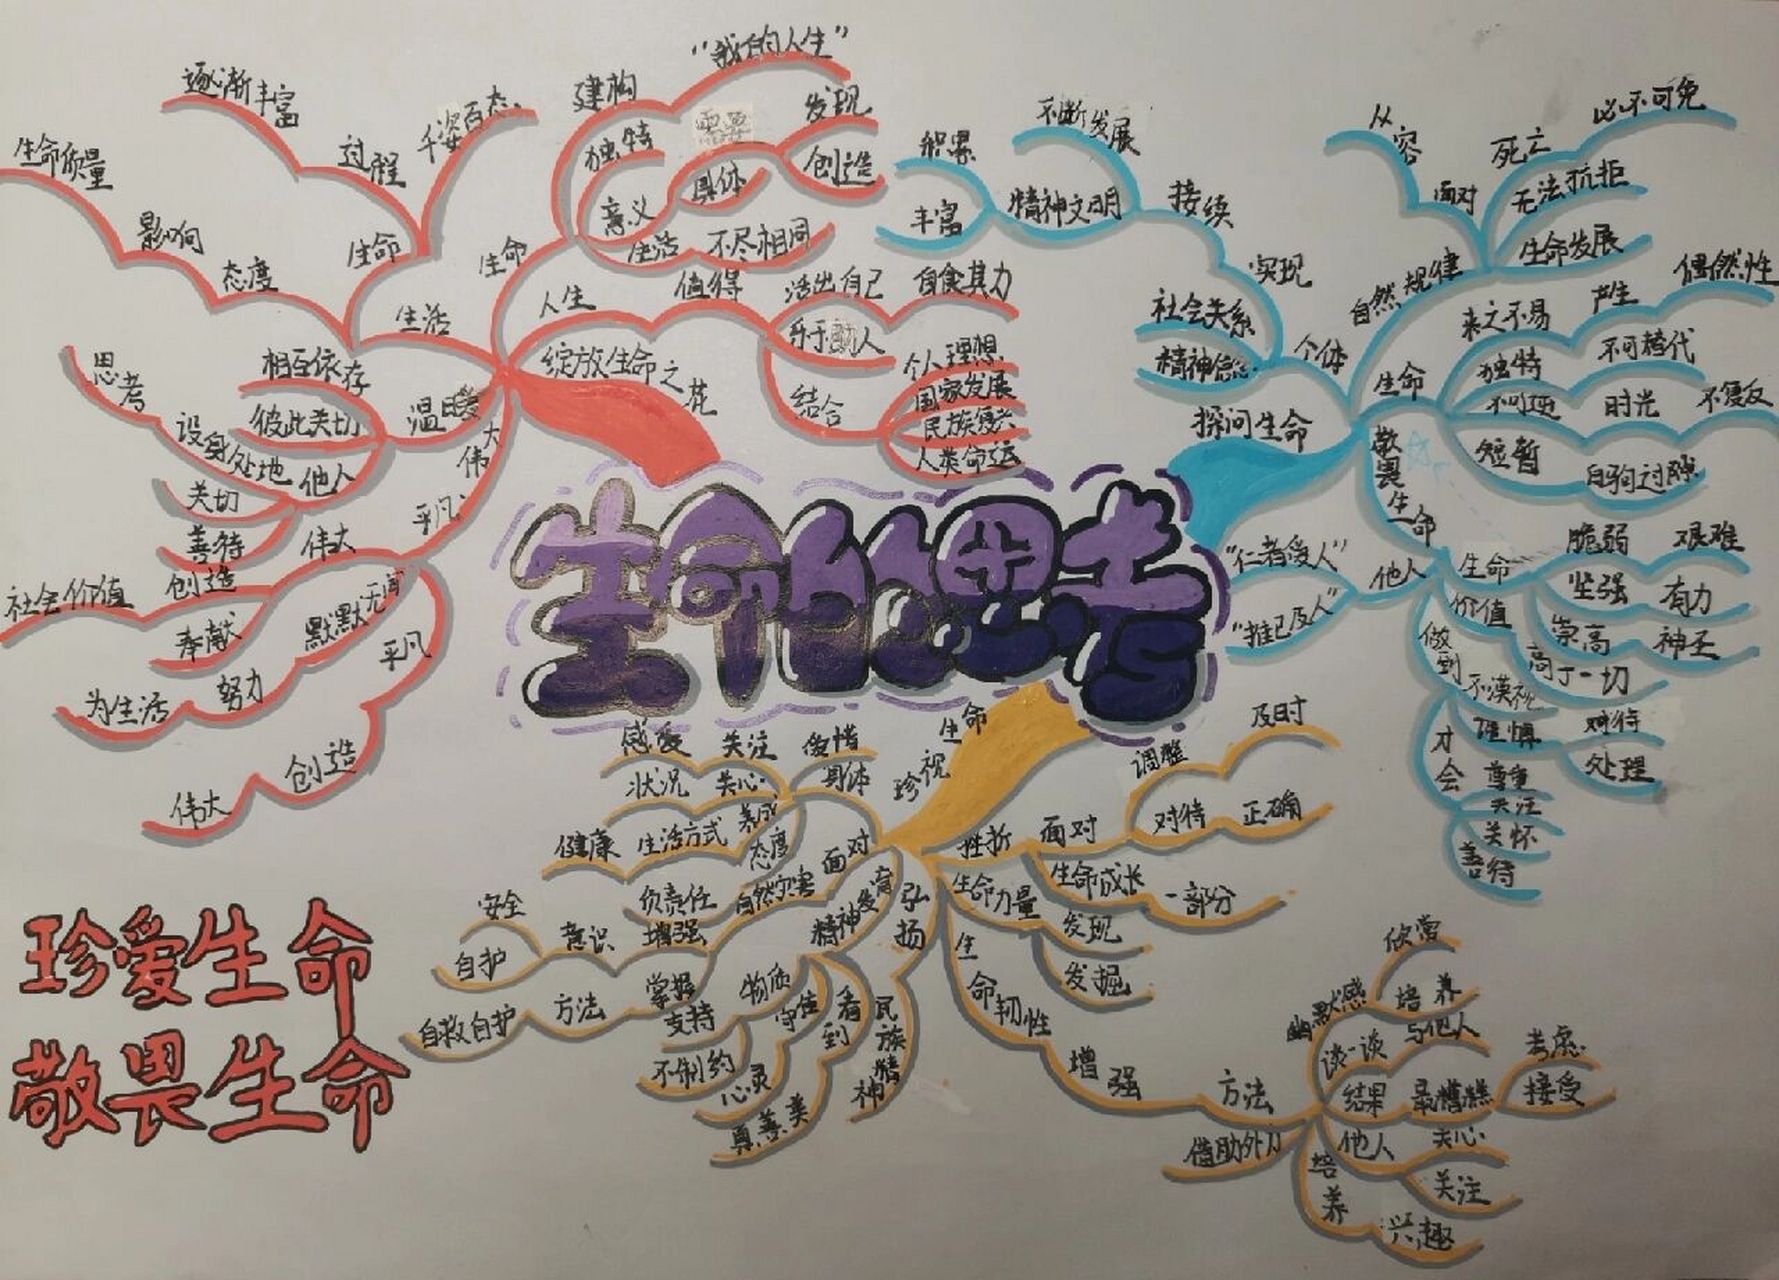 生命的思考
珍爱生命
敬畏生命
绽放生命之花
生命
建构
"我的人生"
独特
意义
需要
具体
发现
创造
生活
不尽相同
人生
值得
活出自己
自食其力
乐于助人
结合
个人理想
国家发展
民族复兴
人类命运
生活
生命
千姿百态
过程
逐渐丰富
态度
影响
生命质量
温暖
相互依存
彼此关切
他人
设身处地
思考
关切
善待
伟大
平凡
伟大
创造
社会价值
奉献
默默无闻
努力
为生活
平凡
创造
伟大
探问生命
个体
实现
接续
精神文明
不断发展
积累
丰富
社会关系
精神信念
生命
自然规律
面对
从容
死亡
必不可免
无法抗拒
生命发展
来之不易
产生
偶然性
独特
不可替代
不可逆
时光
不复返
短暂
白驹过隙
敬畏生命
他人
"仁者爱人"
"推己及人"
生命
脆弱
艰难
坚强
有力
崇高
神圣
价值
高于一切
做到
不漠视
谨慎
对待
处理
才会
尊重
关注
关怀
善待
珍视
生命
面对
身体
爱惜
关注
感受
关心
状况
养成
生活方式
健康
态度
负责任
自然灾害
增强
意识
安全
自护
掌握
方法
自救自护
弘扬
精神发育
物质
支持
不制约
守住
心灵
看到
真、善、美
民族精神
挫折
面对
调整
及时
对待
正确
生命成长
一部分
生命力量
发现
发掘
生命韧性
增强
方法
借助外力
幽默感
欣赏
培养
谈一谈
与他人
结果
最糟糕
考虑
接受
他人
关心
关注
培养
兴趣